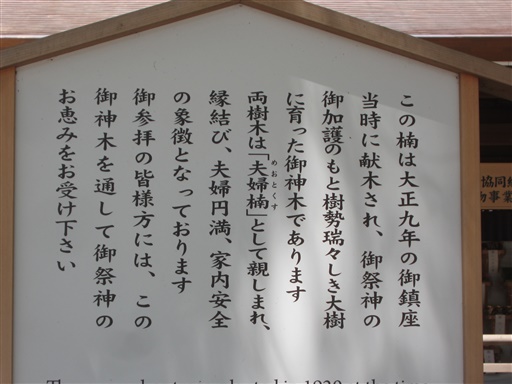 この楠は大正九年の御鎮座
当時に献木され、御祭神の
御加護のもと樹勢瑞々しき大樹
に育った御神木であります
両樹木は「夫婦楠」として親しまれ、
めおとくす
縁結び、夫婦円満、家内安全
の象徴となっております
御参拝の皆様方には、この
御神木を通して御祭神の
お恵みをお受け下さい
協同組
事業